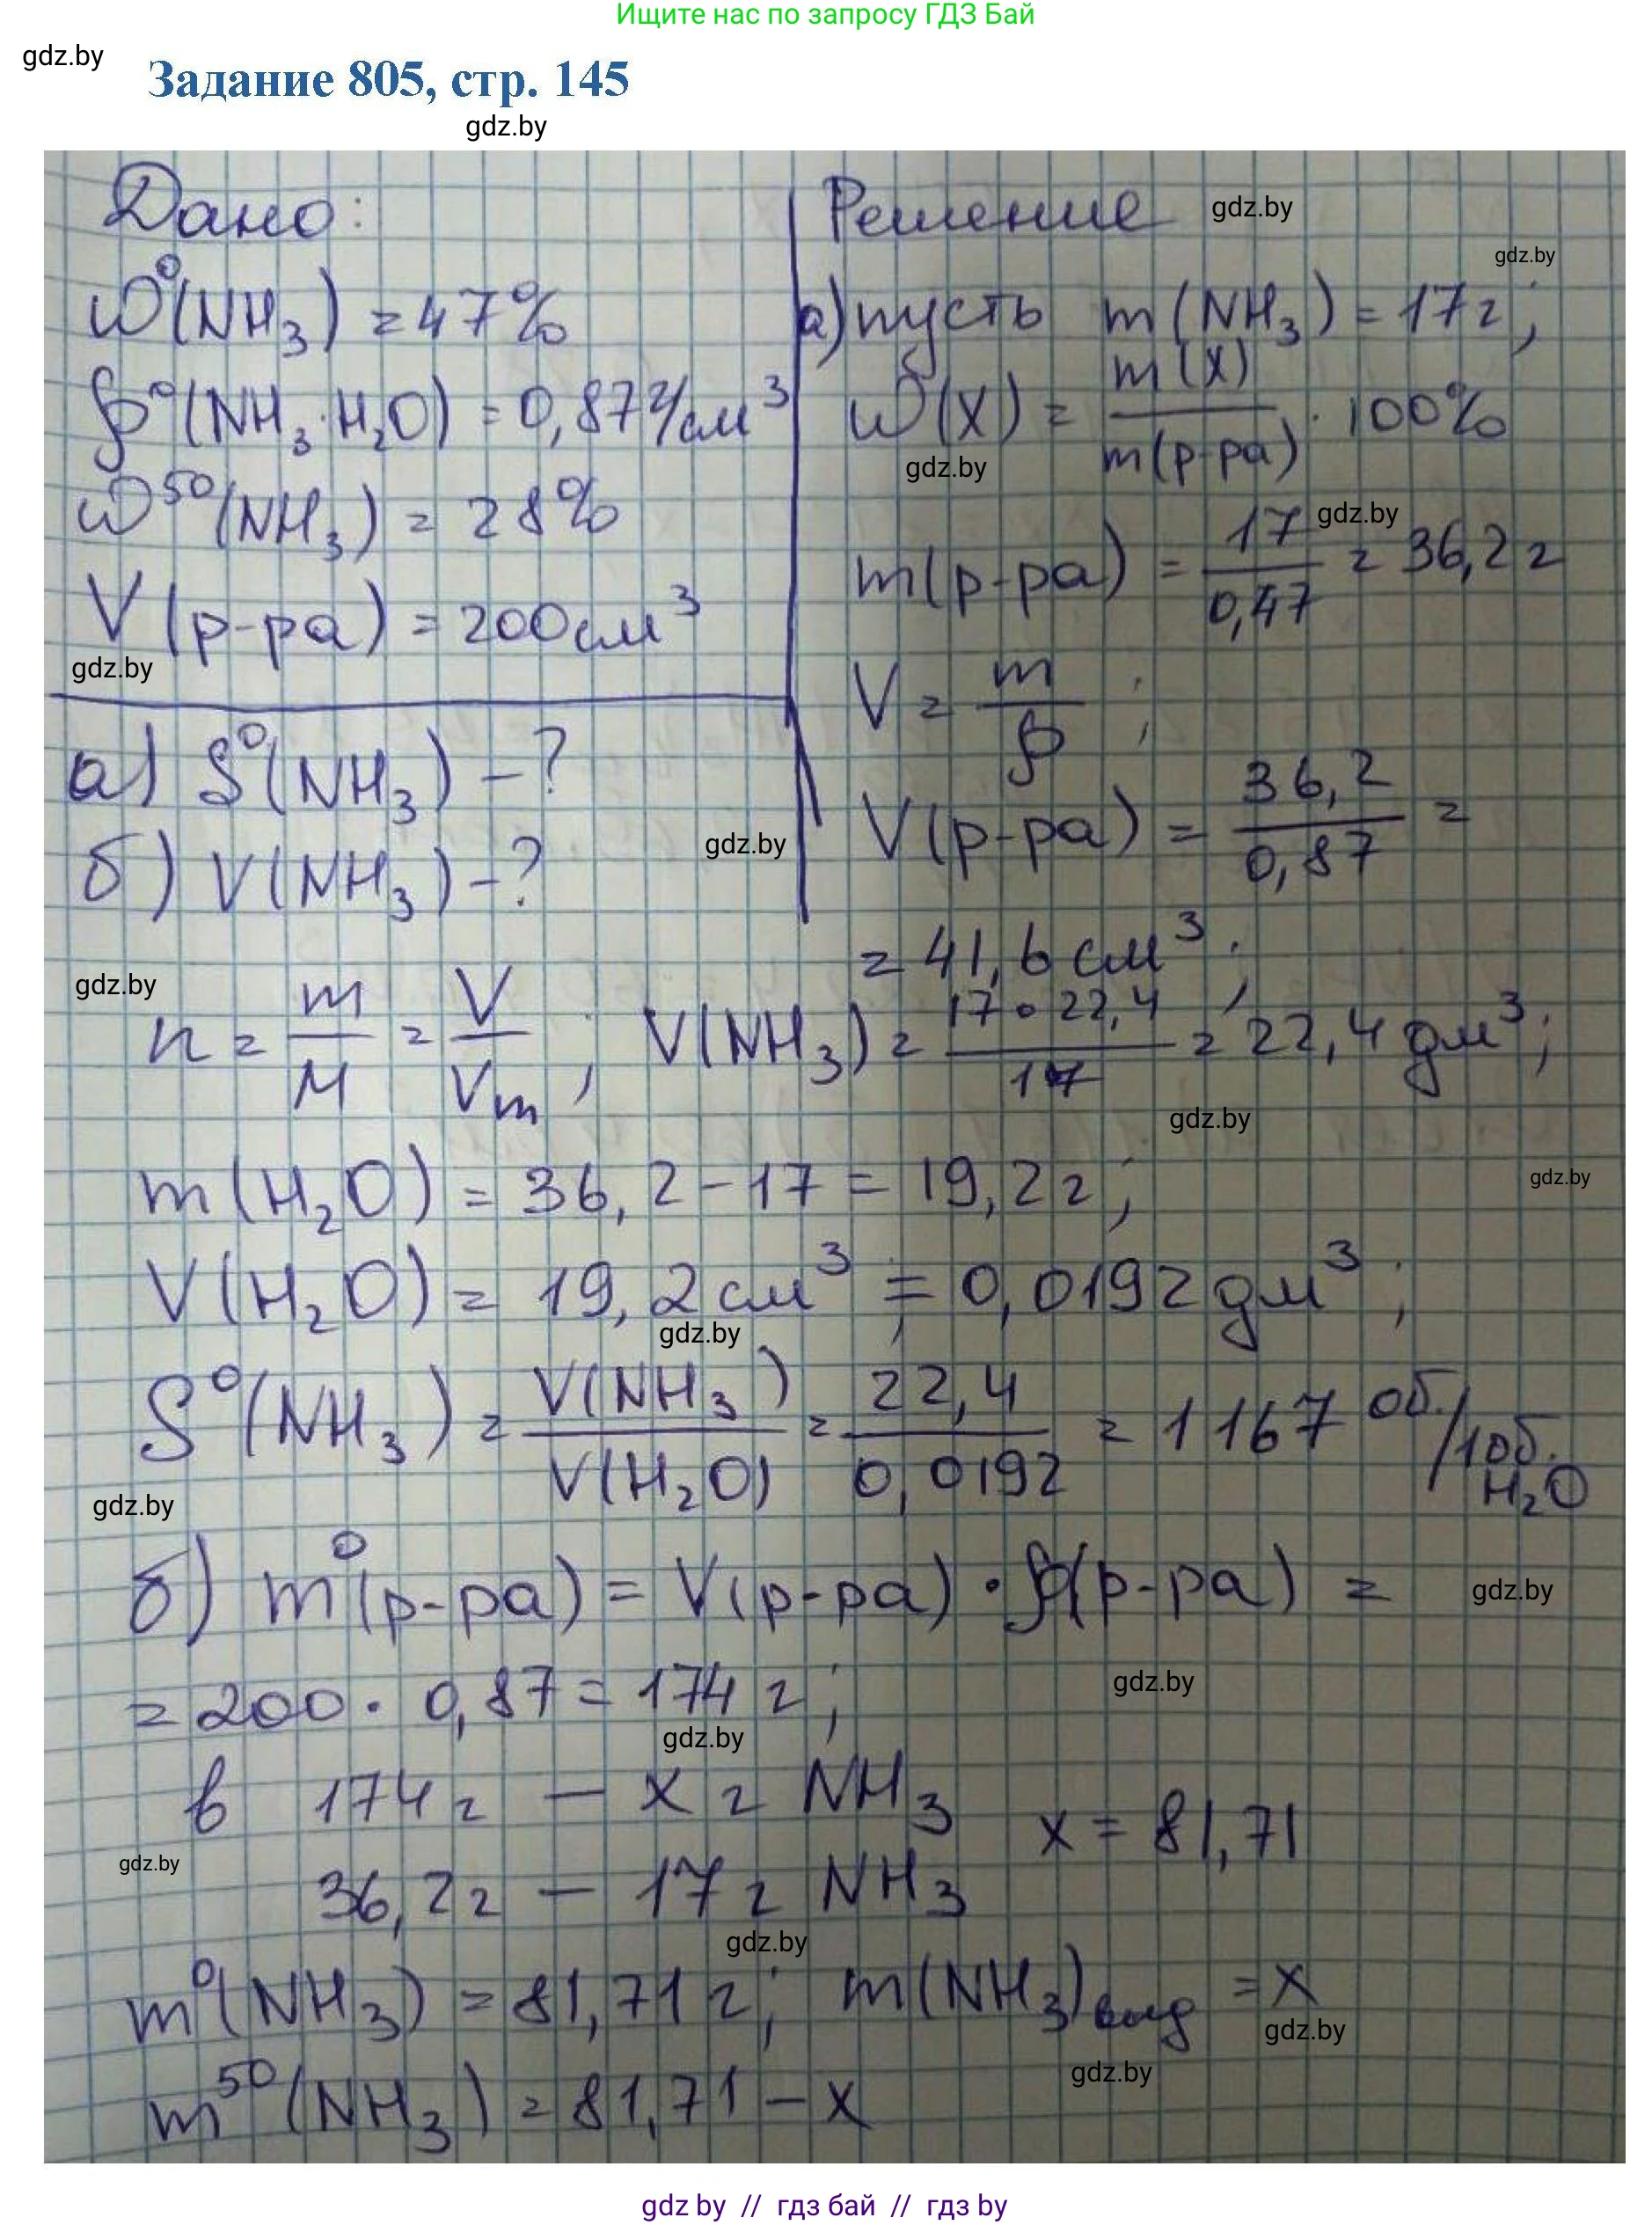 Ищите нас по запросу ГДЗ Бай
gdz.by
Задание 805, стр. 145
gdz.by
Дано:
ω⁰(NH₃) = 47%
ρ⁰(NH₃·H₂O) = 0,87 г/см³
ω⁵⁰(NH₃) = 28%
V(р-ра) = 200 см³
gdz.by
а) S⁰(NH₃) - ?
б) V(NH₃) - ?
gdz.by
Решение
gdz.by
gdz.by
а) пусть m(NH₃) = 17 г;
ω(X) = m(X) / m(р-ра) · 100%
gdz.by
gdz.by
m(р-ра) = 17 / 0,47 = 36,2 г
V = m / ρ ;
V(р-ра) = 36,2 / 0,87 =
= 41,6 см³;
gdz.by
n = m / M = V / Vm ; V(NH₃) = 17 · 22,4 / 17 = 22,4 дм³;
gdz.by
m(H₂O) = 36,2 - 17 = 19,2 г;
gdz.by
V(H₂O) = 19,2 см³; = 0,0192 дм³;
gdz.by
S⁰(NH₃) = V(NH₃) / V(H₂O) = 22,4 / 0,0192 = 1167 об./1об. H₂O
gdz.by
б) m⁰(р-ра) = V(р-ра) · ρ(р-ра) =
gdz.by
= 200 · 0,87 = 174 г;
gdz.by
gdz.by
в 174 г — x г NH₃
x = 81,71
gdz.by
36,2 г — 17 г NH₃
gdz.by
m⁰(NH₃) = 81,71 г; m(NH₃)выд = x
gdz.by
gdz.by
m⁵⁰(NH₃) = 81,71 - x
gdz by // гдз бай // гдз by